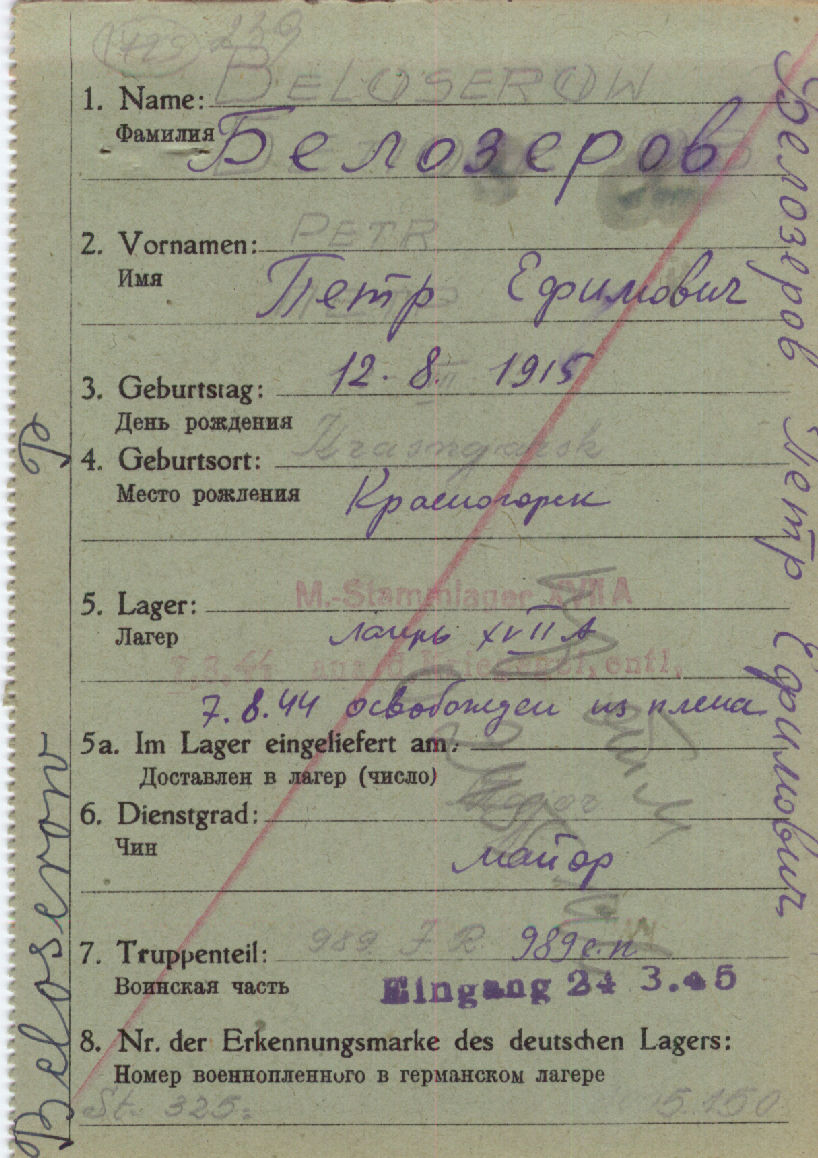 1729 239
BELOSEROW
1. Name:
Фамилия
Белозеров
PETR
2. Vornamen:
Имя
Петр Ефимович
12. 8. 1915
3. Geburtstag:
День рождения
Krasnogorsk
4. Geburtsort:
Место рождения
Красногорск
M.-Stammlager XVII A
5. Lager:
Лагерь
лагерь XVII A
7.8.44 aus d. Kriegsgef. entl.
7.8.44 освобожден из плена
5a. Im Lager eingeliefert am:
Доставлен в лагерь (число)
Major
6. Dienstgrad:
Чин
майор
989 J R 989 с.п
7. Truppenteil:
Воинская часть
Eingang 24 3.45
8. Nr. der Erkennungsmarke des deutschen Lagers:
Номер военнопленного в германском лагере
St. 325. 5.150
Beloserow P
Белозеров Петр Ефимович